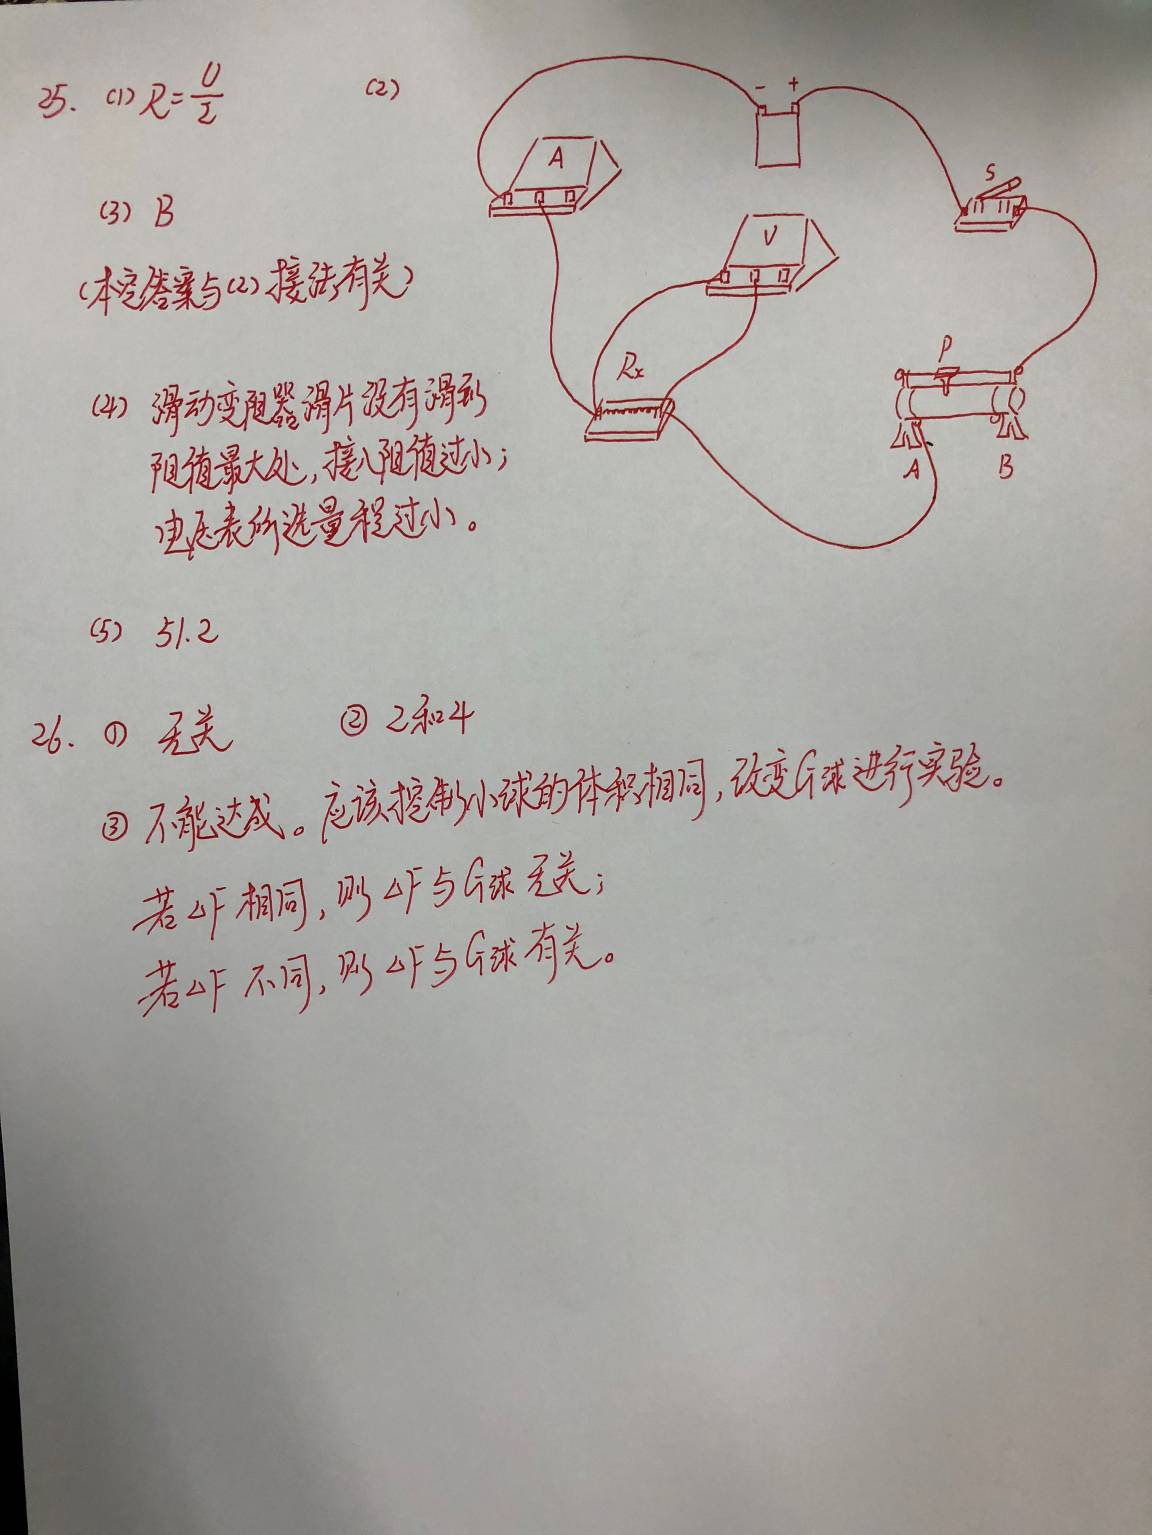 25. (1) R=U/I (2)
- +
A
S
V
(3) B
(本空答案与(2)接法有关)
P
Rx
(4) 滑动变阻器滑片没有滑到
阻值最大处,接入阻值过小;
A B
电压表所选量程过小。
(5) 51.2
26. ① 无关 ② 2和4
③ 不能达成。应该控制小球的体积相同,改变G球进行实验。
若△F相同,则△F与G球无关;
若△F不同,则△F与G球有关。